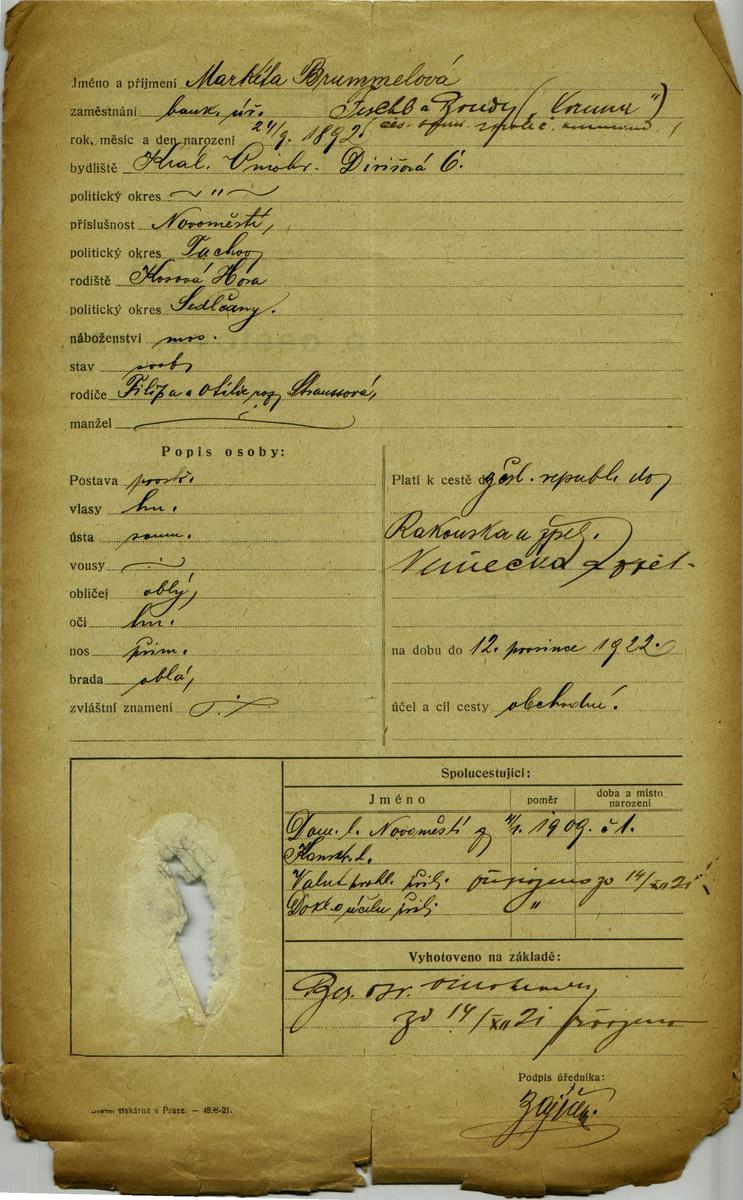 Jméno a příjmení Markéta Brummelová
zaměstnání bank. úř. Fischl a Bondy („Koruna")
rok, měsíc a den narození 24/9. 1892.
bydliště Král. Vinohr. Divišova 6.
politický okres „
příslušnost Novoměstí,
politický okres Tachov
rodiště Kosova Hora
politický okres Sedlčany.
náboženství mos.
stav svob.
rodiče Filipa a Otilie roz. Straussová,
manžel
Popis osoby:
Postava prostř.
vlasy hn.
ústa soum.
vousy
obličej oblý,
oči hn.
nos přim.
brada oblá,
zvláštní znamení
Platí k cestě do čsl. republ. do
Rakouska a zpět.
Německa a zpět.
na dobu do 12. prosince 1922.
účel a cíl cesty obchodní.
Spolucestující:
Jméno poměr doba a místo narození
Dom. l. Novoměstí z 1909. č 1.
Valut prohl. přilj. připojeno zo 14/XII 21
Dokl. o účelu přilj. „
Vyhotoveno na základě:
zo 14/XII 21
Podpis úředníka:
tiskárna v Praze. — 21.